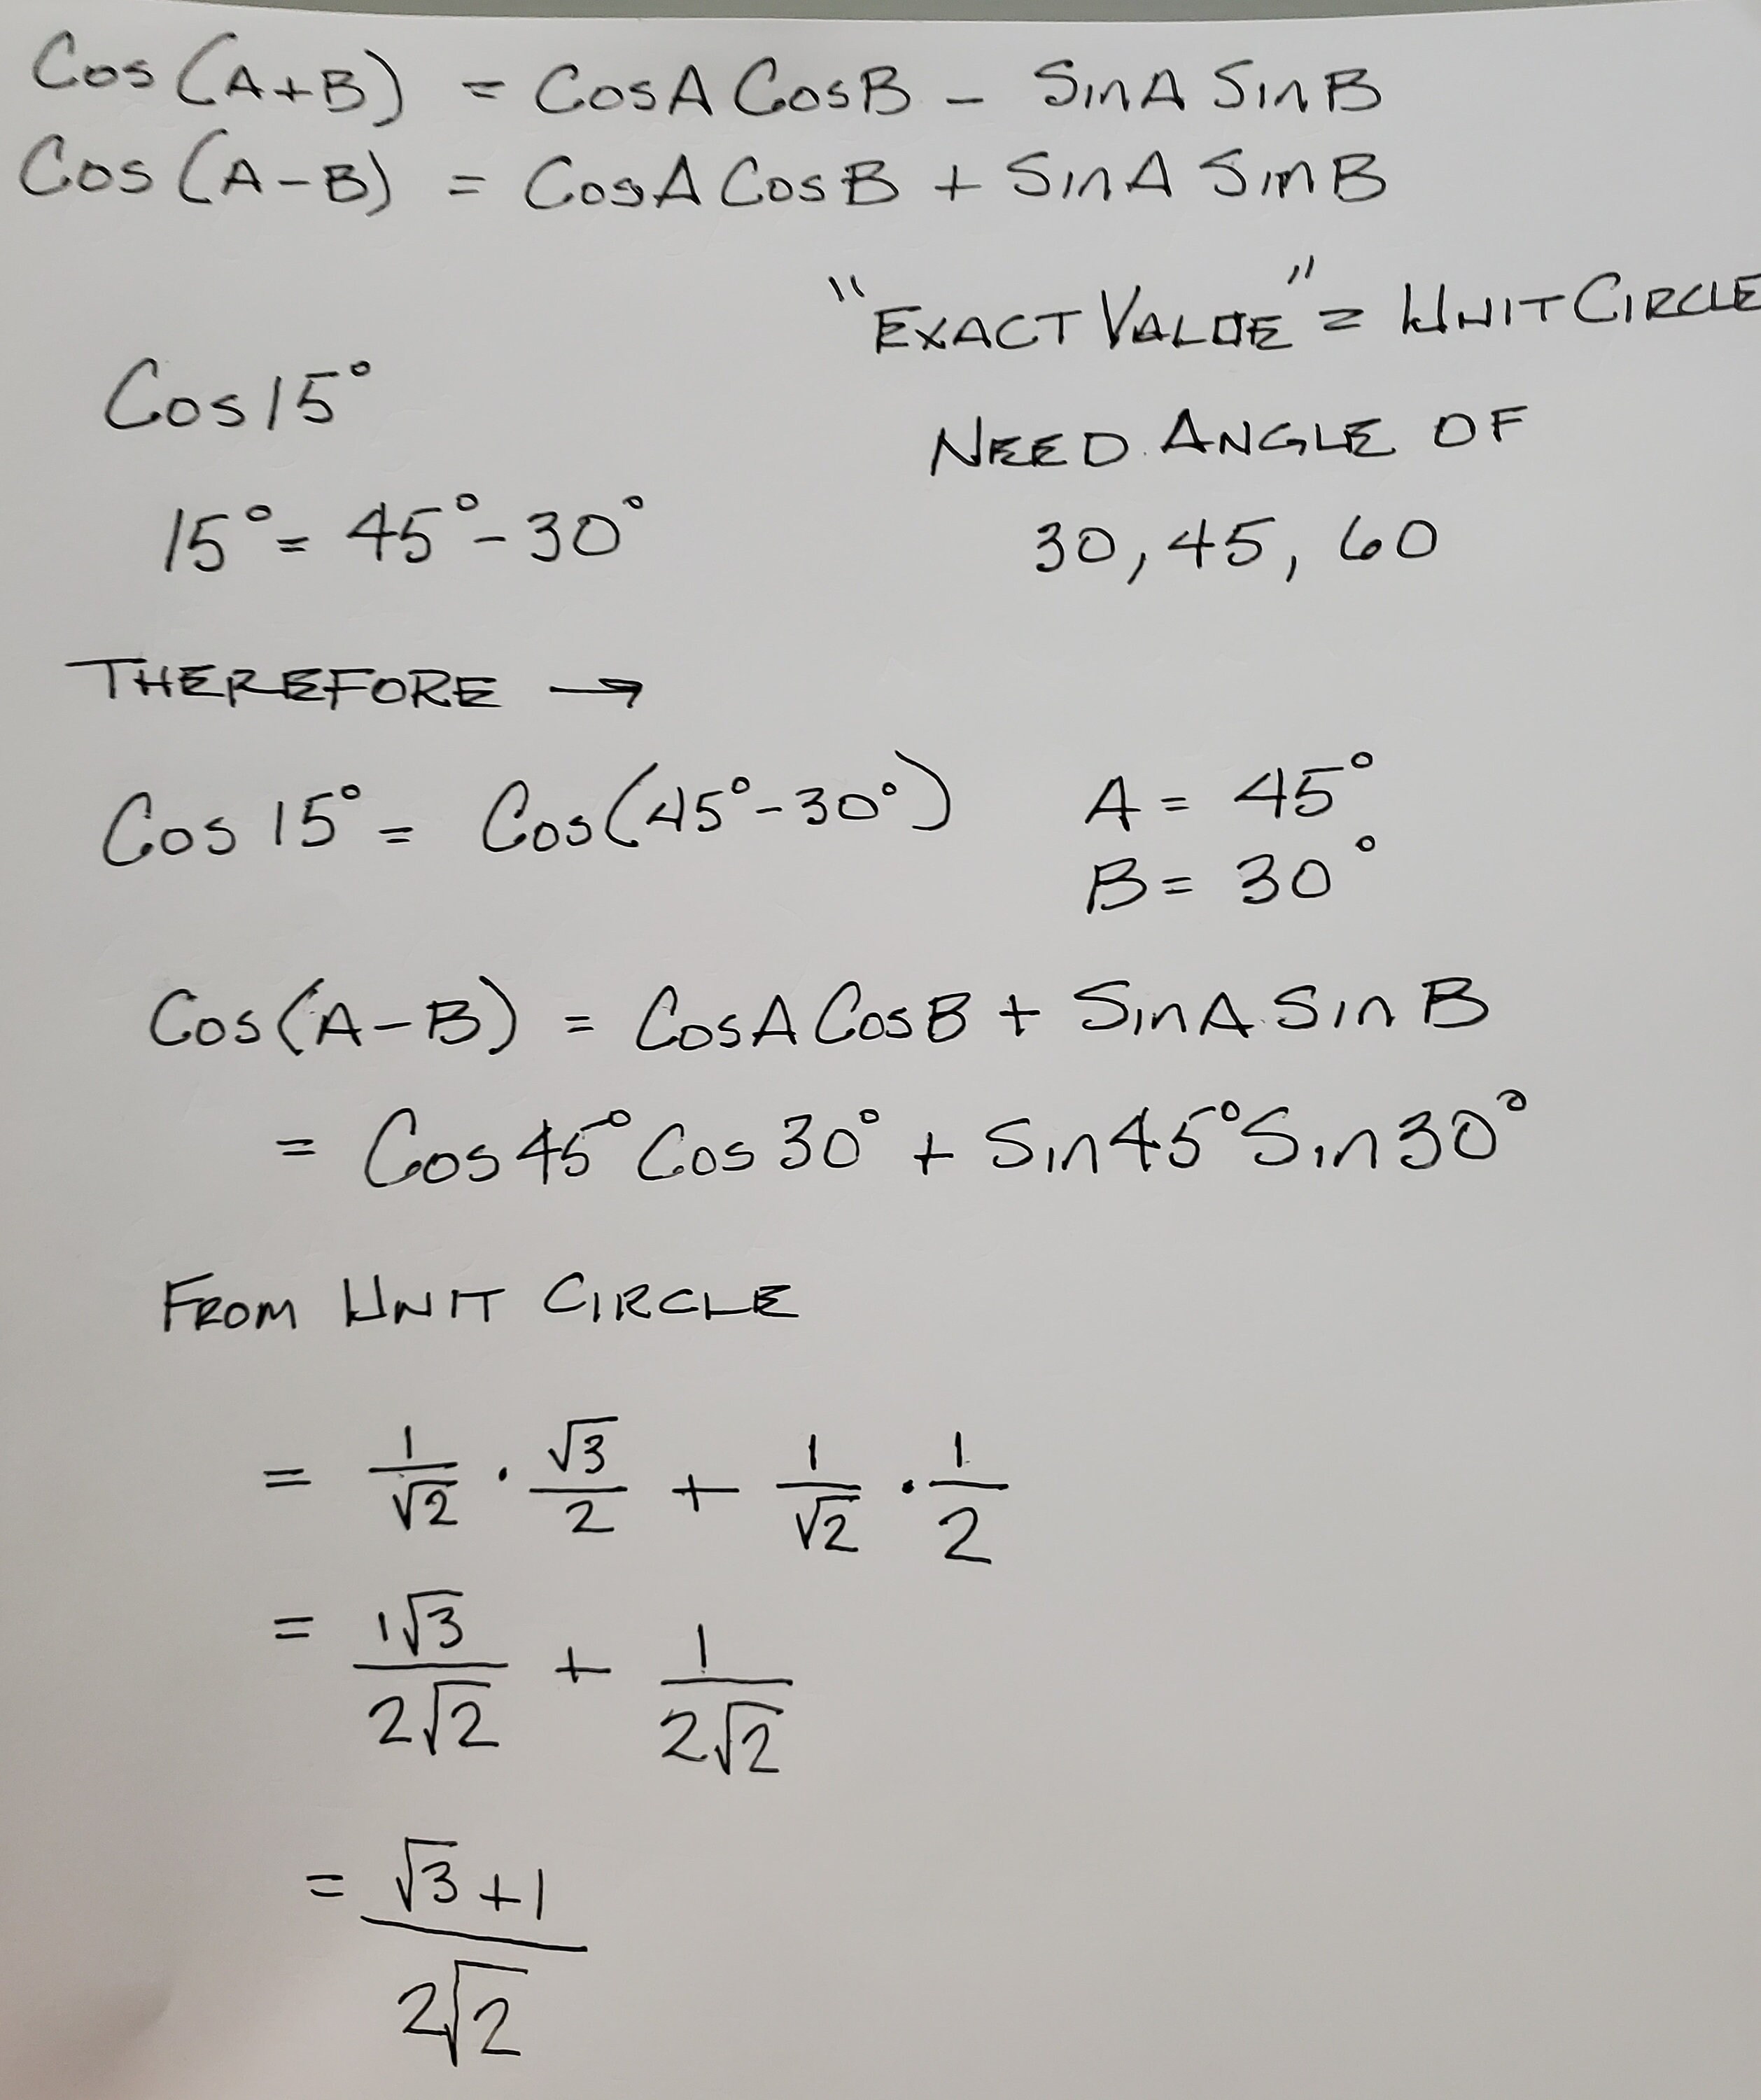 Cos(A+B) = CosA CosB - SinA SinB
Cos(A-B) = CosA CosB + SinA SinB
"EXACT VALUE" = UNIT CIRCLE
Cos 15°
NEED ANGLE OF
15° = 45° - 30°
30, 45, 60
THEREFORE →
Cos 15° = Cos(45° - 30°)
A = 45°
B = 30°
Cos(A-B) = CosA CosB + SinA SinB
= Cos45° Cos30° + Sin45° Sin30°
FROM UNIT CIRCLE
= 1/√2 · √3/2 + 1/√2 · 1/2
= 1√3/2√2 + 1/2√2
= (√3+1)/2√2